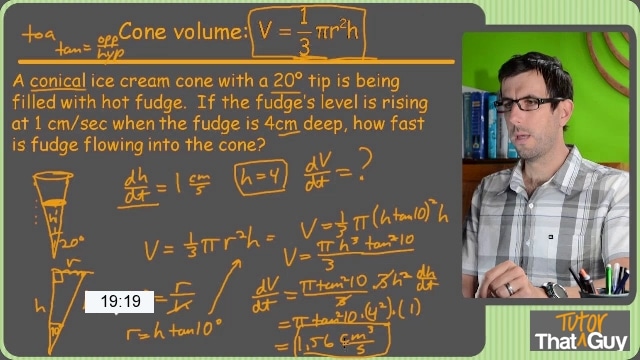 toa
tan = opp/hyp
Cone volume: V = 1/3 πr²h
A conical ice cream cone with a 20° tip is being
filled with hot fudge. If the fudge's level is rising
at 1 cm/sec when the fudge is 4cm deep, how fast
is fudge flowing into the cone?
dh/dt = 1 cm/s h=4 dV/dt = ?
h
20°
V = 1/3 π r² h = V = 1/3 π (h tan10)² h
V = π h³ tan²10 / 3
r
h
10°
= r/h
r = h tan10°
dV/dt = π tan²10 / 3 · 3h² dh/dt
= π tan²10 · (4²) · (1)
= 1.56 cm³/s
19:19
TUTOR
That Guy